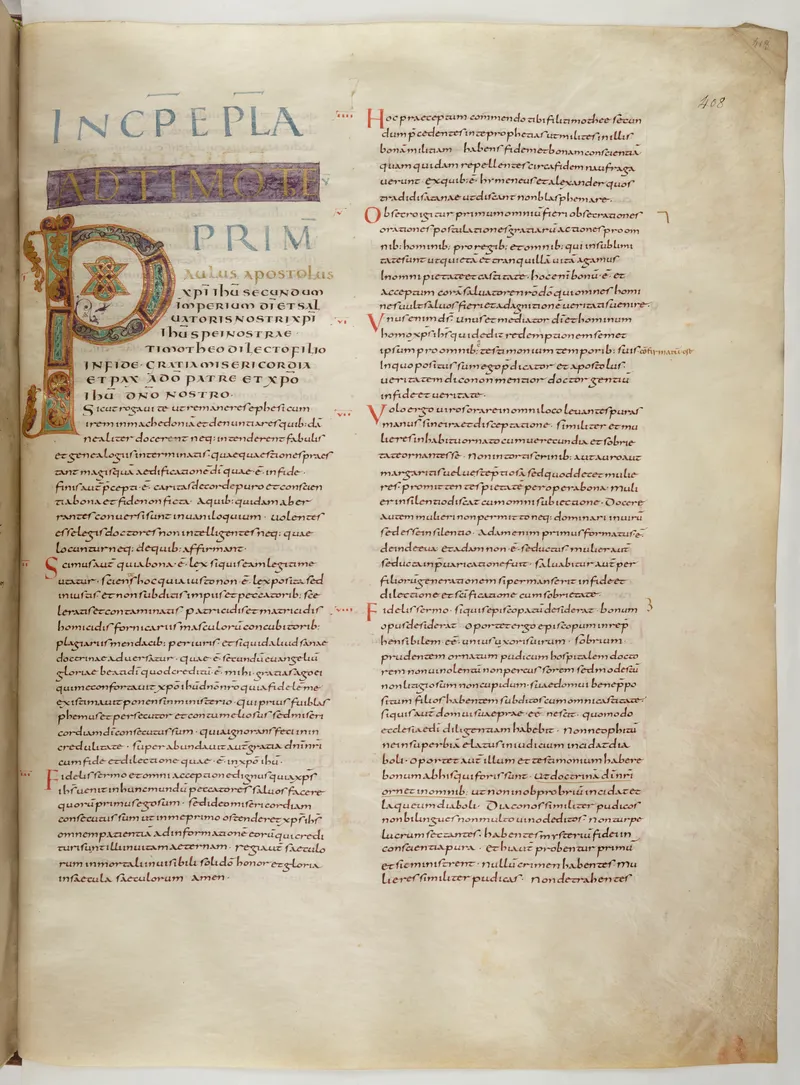 408
INCP EPLA
AD TIMOTH
PRIM
PAULUS APOSTOLUS
XPI IHU SECUNDUM
IMPERIUM DI ET SAL
UATORIS NOSTRI XPI
IHU SPEI NOSTRAE
TIMOTHEO DILECTO FILIO
IN FIDE · GRATIA MISERICORDIA
ET PAX A DO PATRE ET XPO
IHU DNO NOSTRO ·
Sicut rogaui te ut remaneres ephesi cum
irem in machedonia et denuntiares quibdā
ne aliter docerent neq; intenderent fabulis
et genealogiis interminatis · quae quaestiones praes
tant magis quā aedificationē dī quae ē in fide ·
finis aut̄ p̄cepti ē caritas de corde puro et conscien
tia bona et fide non ficta · A quib; quidam aber
rantes conuersi sunt in uaniloquium · uolentes
esse legis doctores non intellegentes neq; quae
locuntur neq; de quib; affirmant ·
Scimus aut̄ quia bona ē lex si quis ea legitime
utatur · sciens hoc quia iusto non ē lex posita sed
iniustis et non subditis impiis et peccatorib; sce
leratis et contaminatis patricidis et matricidis
homicidis fornicariis masculorū concubitorib;
plagiariis mendacib; periuriis et si quid aliud sanae
doctrinae aduersatur · quae ē secundū euangeliū
gloriae beati dī quod creditū ē mihi · gratias ago ei
qui me confortauit xpō ihū dnō nrō quia fidelē me
existimauit ponens in ministerio · qui prius fui blas
phemus et persecutor et contumeliosus sed miseri
cordiam dī consecutus sum · quia ignorans feci in
credulitate · superabundauit aut̄ gratia dnī nri
cum fide et dilectione quae ē in xpō ihū ·
Fidelis sermo et omni acceptione dignus quia xps
ihs uenit in hunc mundū peccatores saluos facere
quorū primus ego sum · sed ideo misericordiam
consecutus sum ut in me primo ostenderet xps ihs
omnem patientiā ad informationē eorū qui credi
turi sunt illi in uitam aeternam · regi aut̄ saeculo
rum inmortali inuisibili soli dō honor et gloria
in saecula saeculorum amen ·
Hoc praeceptum commendo tibi fili timothee secun
dum p̄cedentes in te prophetias ut milites in illis
bonā militiam · habens fidem et bonam conscientiā
quam quidam repellentes circa fidem naufraga
uerunt · ex quib; ē hymeneus et alexander quos
tradidi satanae ut discant non blasphemare ·
Obsecro igitur primum omniū fieri obsecrationes
orationes postulationes gratiarū actiones pro om
nib; hominib; pro regib; et omnib; qui in sublimi
tate sunt ut quietā et tranquillā uitā agamus
In omni pietate et castitate · hoc eni bonū ē et
acceptum corā saluatore nro dō qui omnes homi
nes uult saluos fieri et ad agnitionē ueritatis uenire ·
Unus enim ds · unus et mediator dī et hominum
homo xps ihs qui dedit redemptionem semet
ipsum pro omnib; testimonium temporib; suis confirmatū est
In quo positus sum ego p̄dicator et apostolus
ueritatem dico non mentior doctor gentiū
in fide et ueritate ·
Uolo ergo uiros orare in omni loco leuantes puras
manus sine ira et disceptatione · similiter et mu
lieres in habitu ornato cum uerecundia et sobrie
tate ornantes se · non in tortis crinib; aut auro aut
margaritis uel ueste p̄tiosa sed quod decet mulie
res · promittentes pietatē per opera bona · muli
er in silentio discat cum omni subiectione · Docere
autem mulieri non permitto neq; dominari in uirū
sed esse in silentio · Adam enim primus formatus ē
deinde eua · et adam non ē seductus mulier aut̄
seducta in p̄uaricatione fuit · saluabitur aut̄ per
filiorū generationem si permanserit in fide et
dilectione et sc̄ificatione cum sobrietate ·
Fidelis sermo · si quis episcopatū desiderat bonum
opus desiderat · oportet ergo episcopum inrep̄
hensibilem eē · unius uxoris uirum · sobrium
prudentem ornatum pudicum hospitalem docto
rem non uinolentū non percussorem sed modestū
non litigiosum non cupidum · suae domui bene p̄po
situm filios habentem subditos cum omni castitate ·
si quis aut̄ domui suae praeeē nescit · quomodo
ecclesiae dī diligentiam habebit · Non neophitū
ne in superbiā elatus in iudicium incidat dia
boli · oportet aut̄ illum et testimonium habere
bonum ab his qui foris sunt · ut doctrinā dnī nri
ornet in omnib; ut non in obprobriū incidat et
laqueum diaboli · Diaconos similiter pudicos
non bilingues non multo uino deditos non turpe
lucrum sectantes · habentes mysteriū fidei in
conscientia pura · et hi aut̄ probentur primū
et sic ministrent · nullū crimen habentes · mu
lieres similiter pudicas · non detrahentes